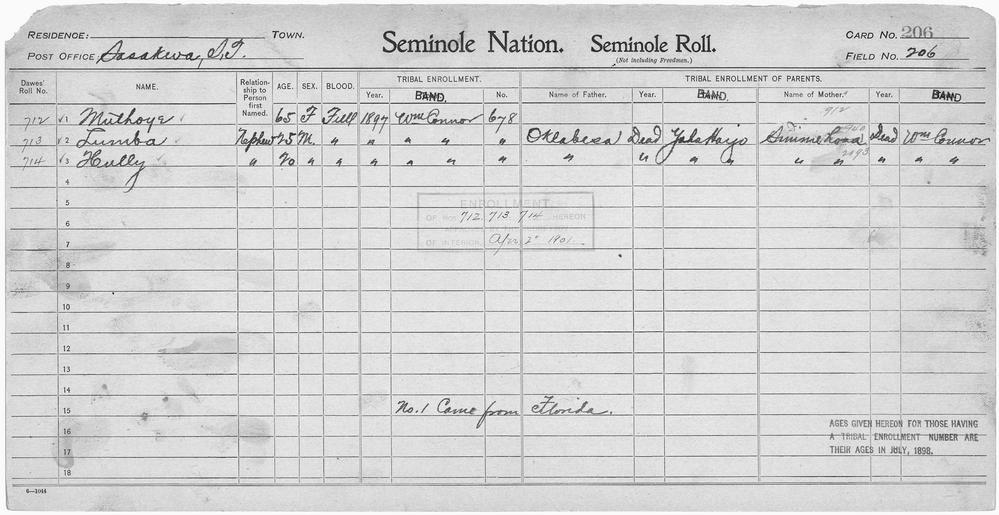 RESIDENCE: TOWN. Seminole Nation. Seminole Roll. CARD NO. 206
POST OFFICE Sasakwa, I.T. (Not including Freedmen.) FIELD NO. 206
Dawes' Roll No. NAME. Relationship to Person first Named. AGE. SEX. BLOOD. TRIBAL ENROLLMENT. TRIBAL ENROLLMENT OF PARENTS.
Year. BAND. No. Name of Father. Year. BAND. Name of Mother. Year. BAND
912
712 √1 Muthoye 65 F Full 1897 Wm Connor 678
713 √2 Lumba Nephew 25 M. " " " " " Oklabesa Dead Yaha Hajo Dead Wm Connor
714 √3 Hully " 20 " " " " " " " " " " " " " " "
4
5
ENROLLMENT
6 OF NOS 712. 713. 714 HEREON
7 OF INTERIOR Apr. 2" 1901
8
9
10
11
12
13
14
15 No. 1 Came from Florida.
16 AGES GIVEN HEREON FOR THOSE HAVING
A TRIBAL ENROLLMENT NUMBER ARE
17 THEIR AGES IN JULY, 1898.
18
6—1044